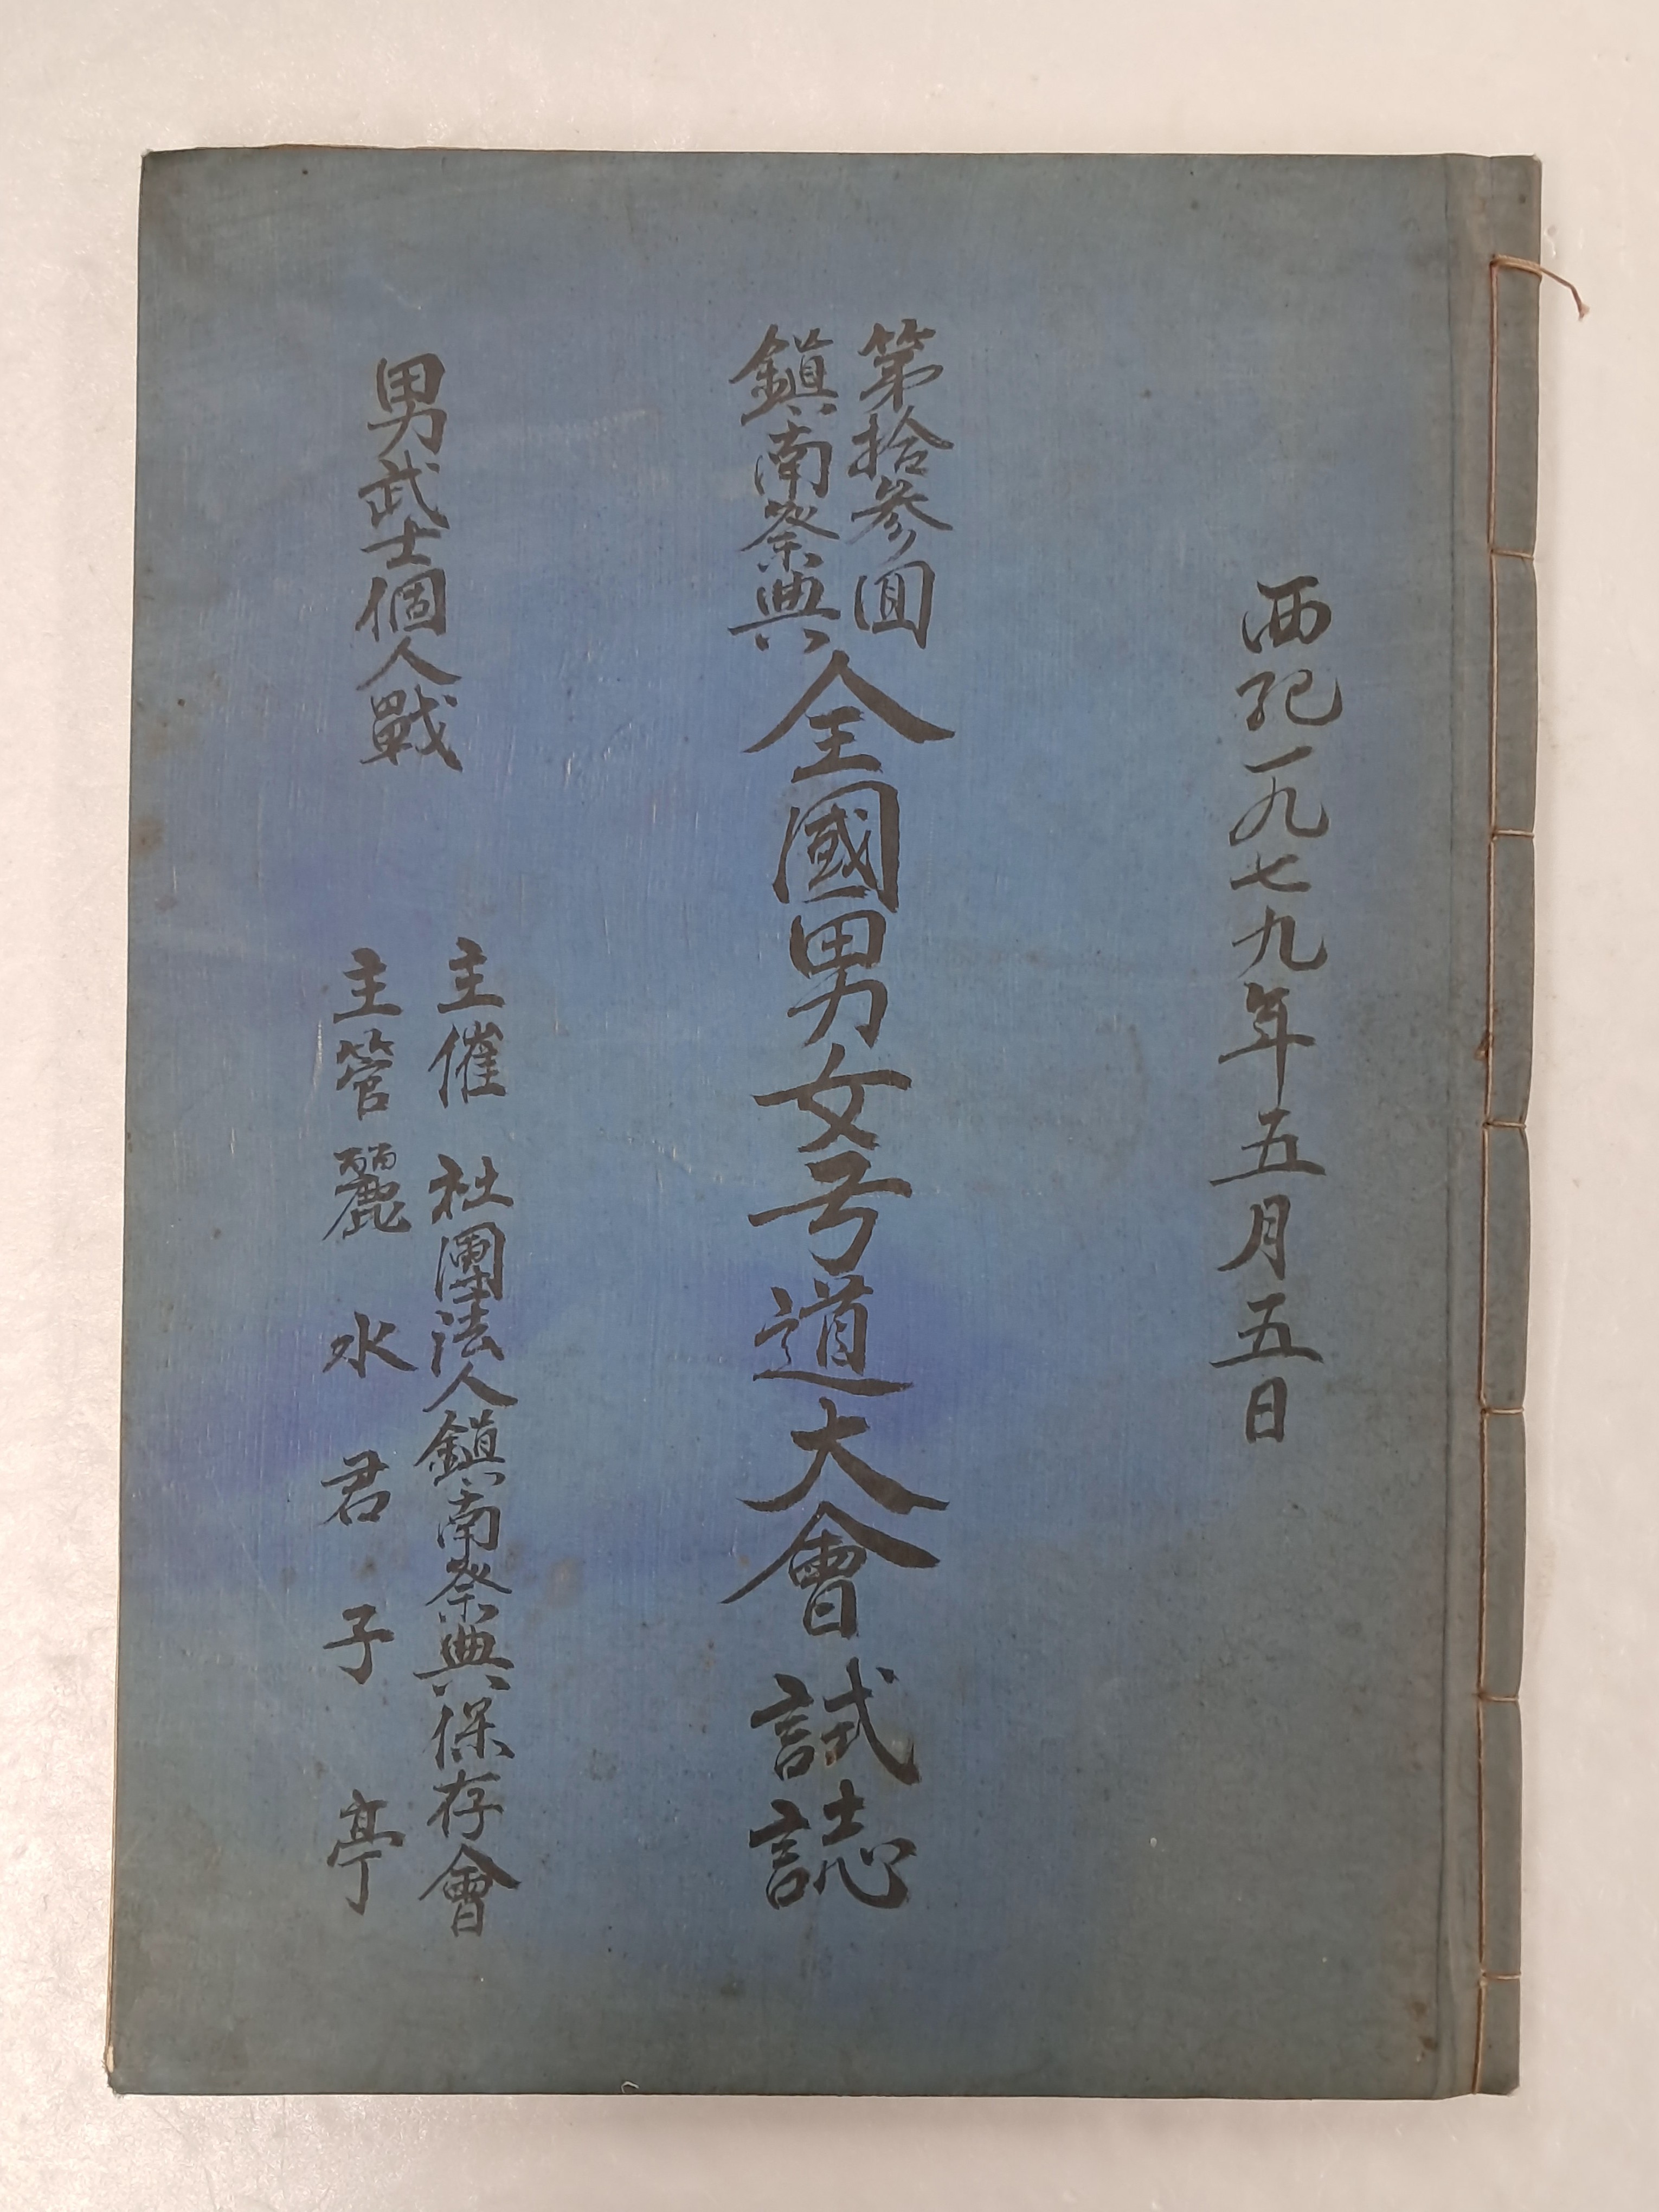 西紀一九七九年五月五日
第拾參回
鎮南祭典
全國男女弓道大會 試誌
男武士個人戰
主催 社團法人鎮南祭典保存會
主管 麗水君子亭